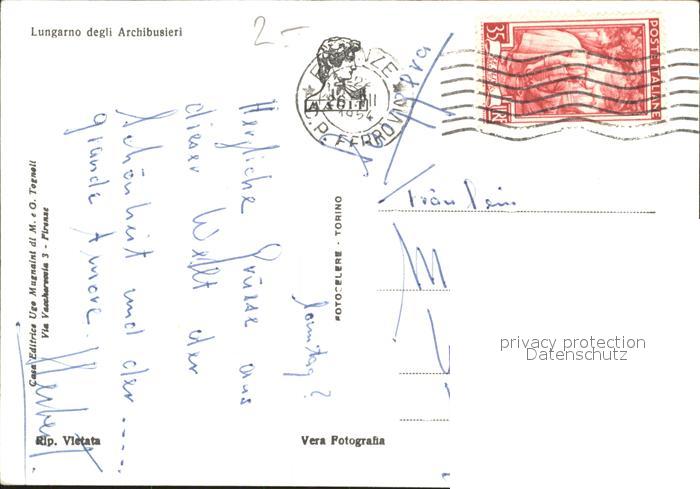 Lungarno degli Archibusieri
2.-
FIRENZE
1954
C.P. FERROVIA
35
POSTE ITALIANE
LIRE
Herzliche Grüsse aus
dieser Welt der
Schönheit und der .....
grande Amore.
Herbert.
Samstag?
Fräulein
M
Casa Editrice Ugo Mugnaini di M. e G. Tognoli
Via Vacchereccia 3 - Firenze
FOTOCELERE - TORINO
privacy protection
Datenschutz
Rip. Vietata
Vera Fotografia